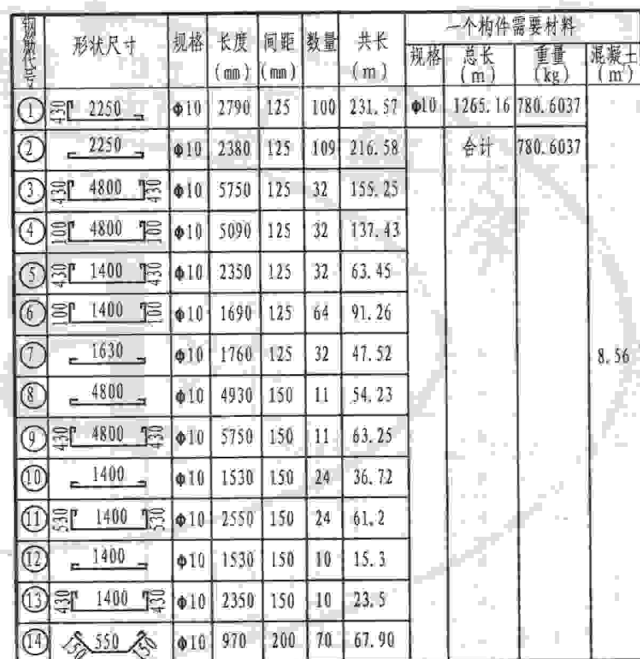 钢筋代号 形状尺寸 规格 长度(mm) 间距(mm) 数量 共长(m) 一个构件需要材料
规格 总长(m) 重量(kg) 混凝土(m³)
① 430 2250 Φ10 2790 125 100 231.57 Φ10 1265.16 780.6037
② 2250 Φ10 2380 125 109 216.58 合计 780.6037
③ 430 4800 430 Φ10 5750 125 32 155.25
④ 100 4800 100 Φ10 5090 125 32 137.43
⑤ 430 1400 430 Φ10 2350 125 32 63.45
⑥ 100 1400 100 Φ10 1690 125 64 91.26
⑦ 1630 Φ10 1760 125 32 47.52 8.56
⑧ 4800 Φ10 4930 150 11 54.23
⑨ 430 4800 430 Φ10 5750 150 11 63.25
⑩ 1400 Φ10 1530 150 24 36.72
⑪ 530 1400 530 Φ10 2550 150 24 61.2
⑫ 1400 Φ10 1530 150 10 15.3
⑬ 430 1400 430 Φ10 2350 150 10 23.5
⑭ 150 550 150 Φ10 970 200 70 67.90